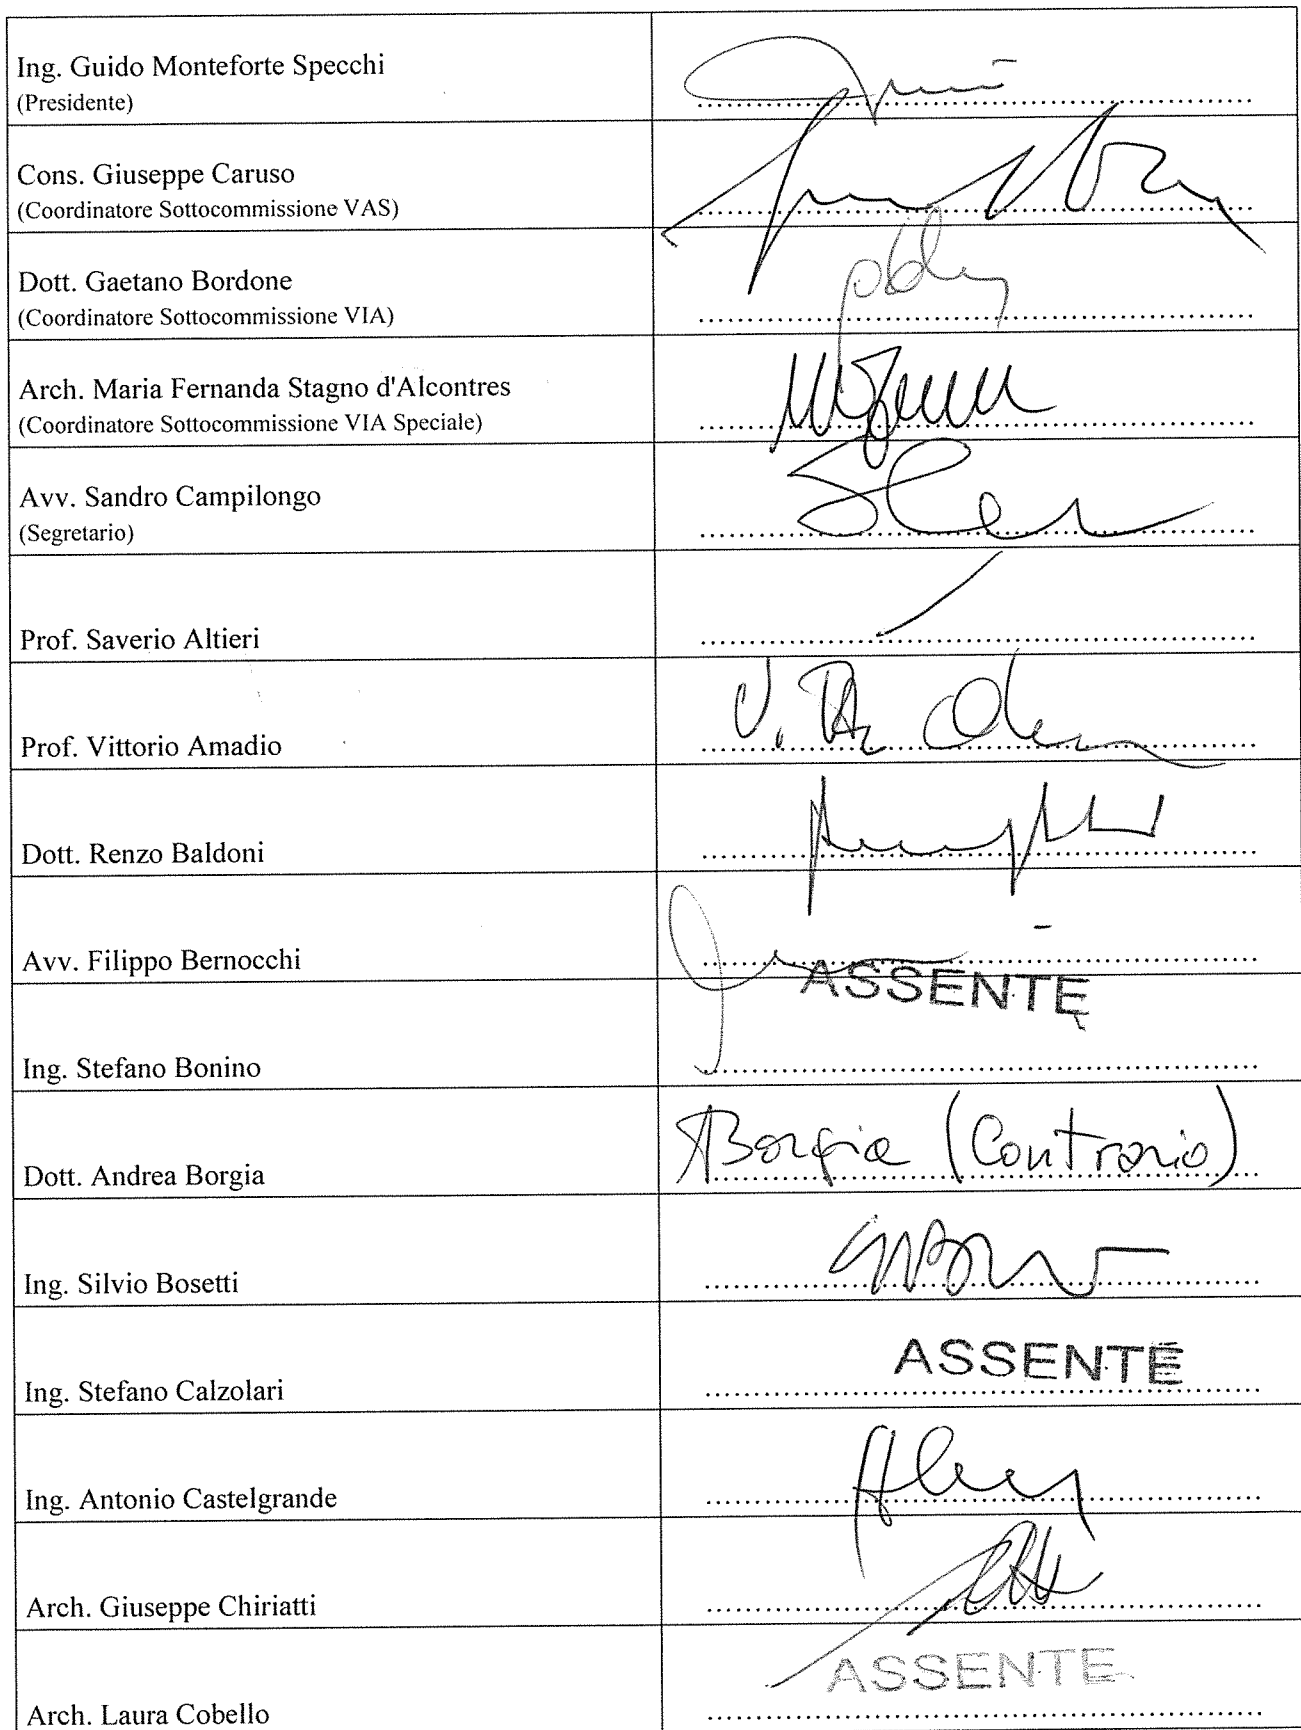 Ing. Guido Monteforte Specchi
(Presidente)
Cons. Giuseppe Caruso
(Coordinatore Sottocommissione VAS)
Dott. Gaetano Bordone
(Coordinatore Sottocommissione VIA)
Arch. Maria Fernanda Stagno d'Alcontres
(Coordinatore Sottocommissione VIA Speciale)
Avv. Sandro Campilongo
(Segretario)
Prof. Saverio Altieri
Prof. Vittorio Amadio
Dott. Renzo Baldoni
Avv. Filippo Bernocchi
ASSENTE
Ing. Stefano Bonino
Dott. Andrea Borgia ABorgia (Contrario)
Ing. Silvio Bosetti
Ing. Stefano Calzolari ASSENTE
Ing. Antonio Castelgrande
Arch. Giuseppe Chiriatti
Arch. Laura Cobello ASSENTE